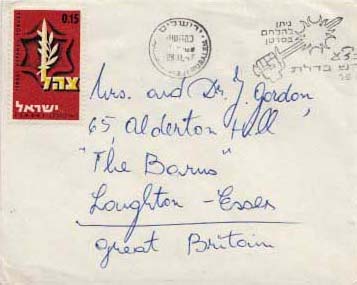 0.15
צהל
ישראל
ירושלים
ניתן
להלחם
בסרטן
Mrs. and Dr. J. Gordon
65, Alderton Hill
"The Barns"
Loughton - Essex
Great Britain